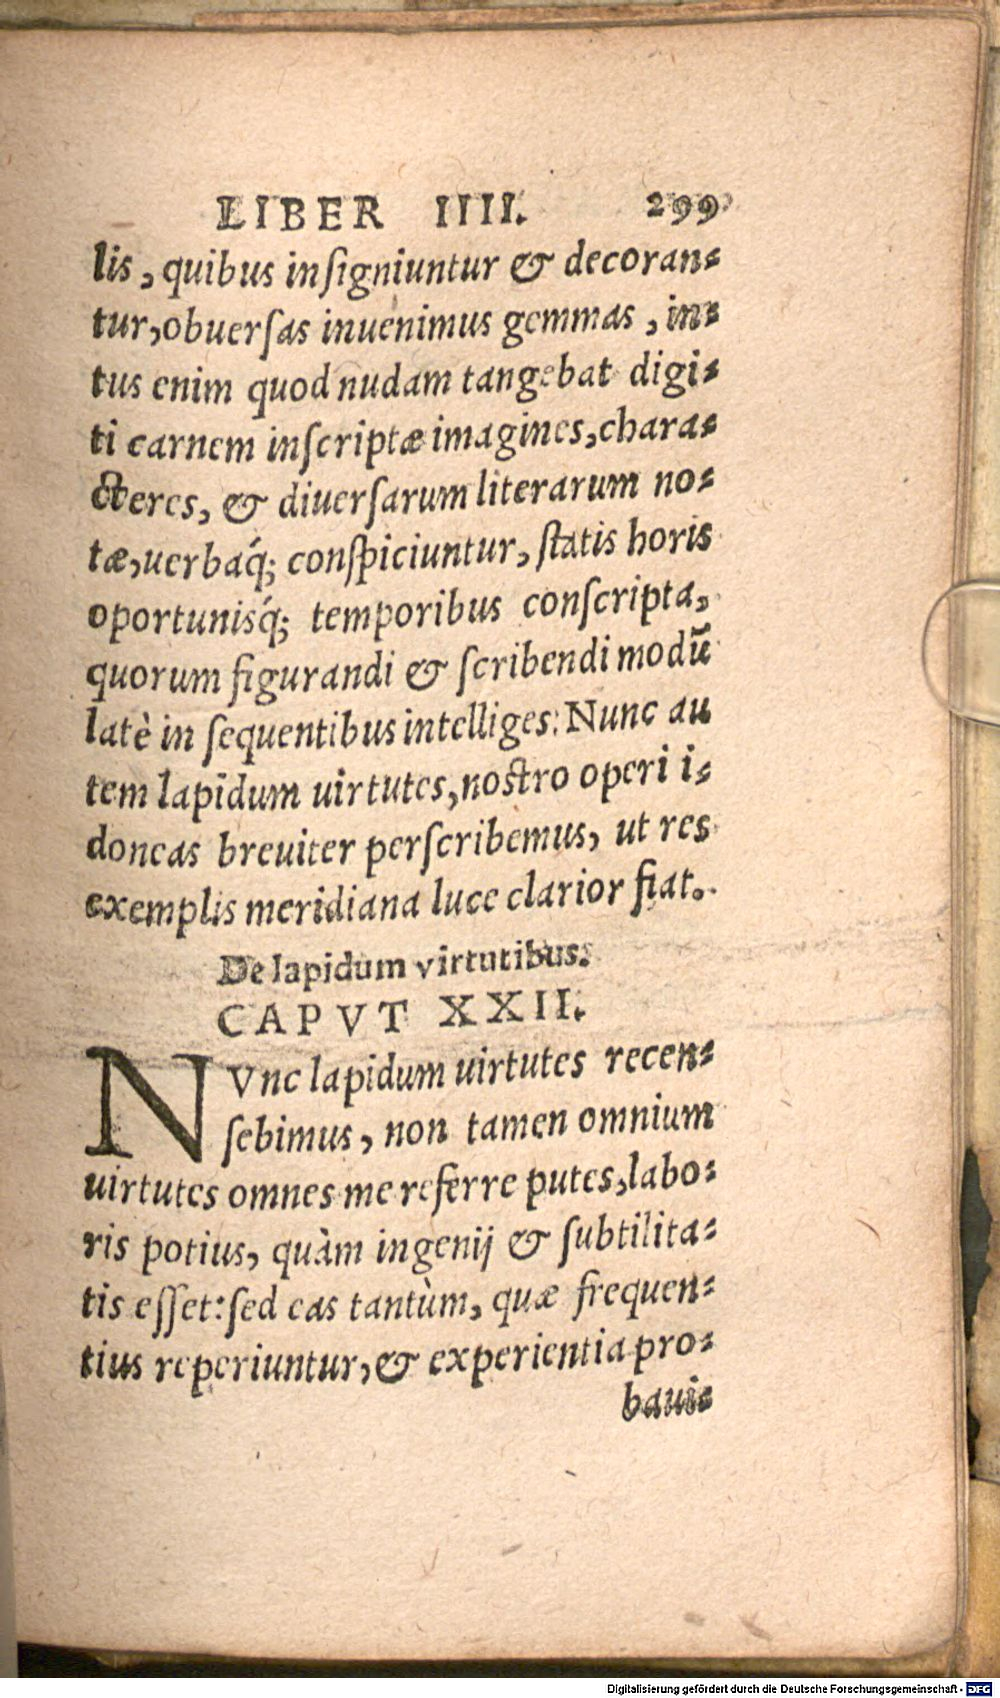 LIBER IIII. 299
lis, quibus inſigniuntur & decoran-
tur, obuerſas inuenimus gemmas, in-
tus enim quod nudam tangebat digi-
ti carnem inſcriptæ imagines, chara-
cteres, & diuerſarum literarum no-
tæ, uerbaq́; conſpiciuntur, ſtatis horis
oportunisq́; temporibus conſcripta,
quorum figurandi & ſcribendi modū
latè in ſequentibus intelliges: Nunc au
tem lapidum uirtutes, noſtro operi i-
doneas breuiter perſcribemus, ut res
exemplis meridiana luce clarior fiat.
De lapidum virtutibus.
CAPVT XXII.
NVnc lapidum uirtutes recen-
ſebimus, non tamen omnium
uirtutes omnes me referre putes, labo-
ris potius, quàm ingenij & ſubtilita-
tis eſſet: ſed eas tantùm, quæ frequen-
tius reperiuntur, & experientia pro-
baui-
Digitalisierung gefördert durch die Deutsche Forschungsgemeinschaft - DFG